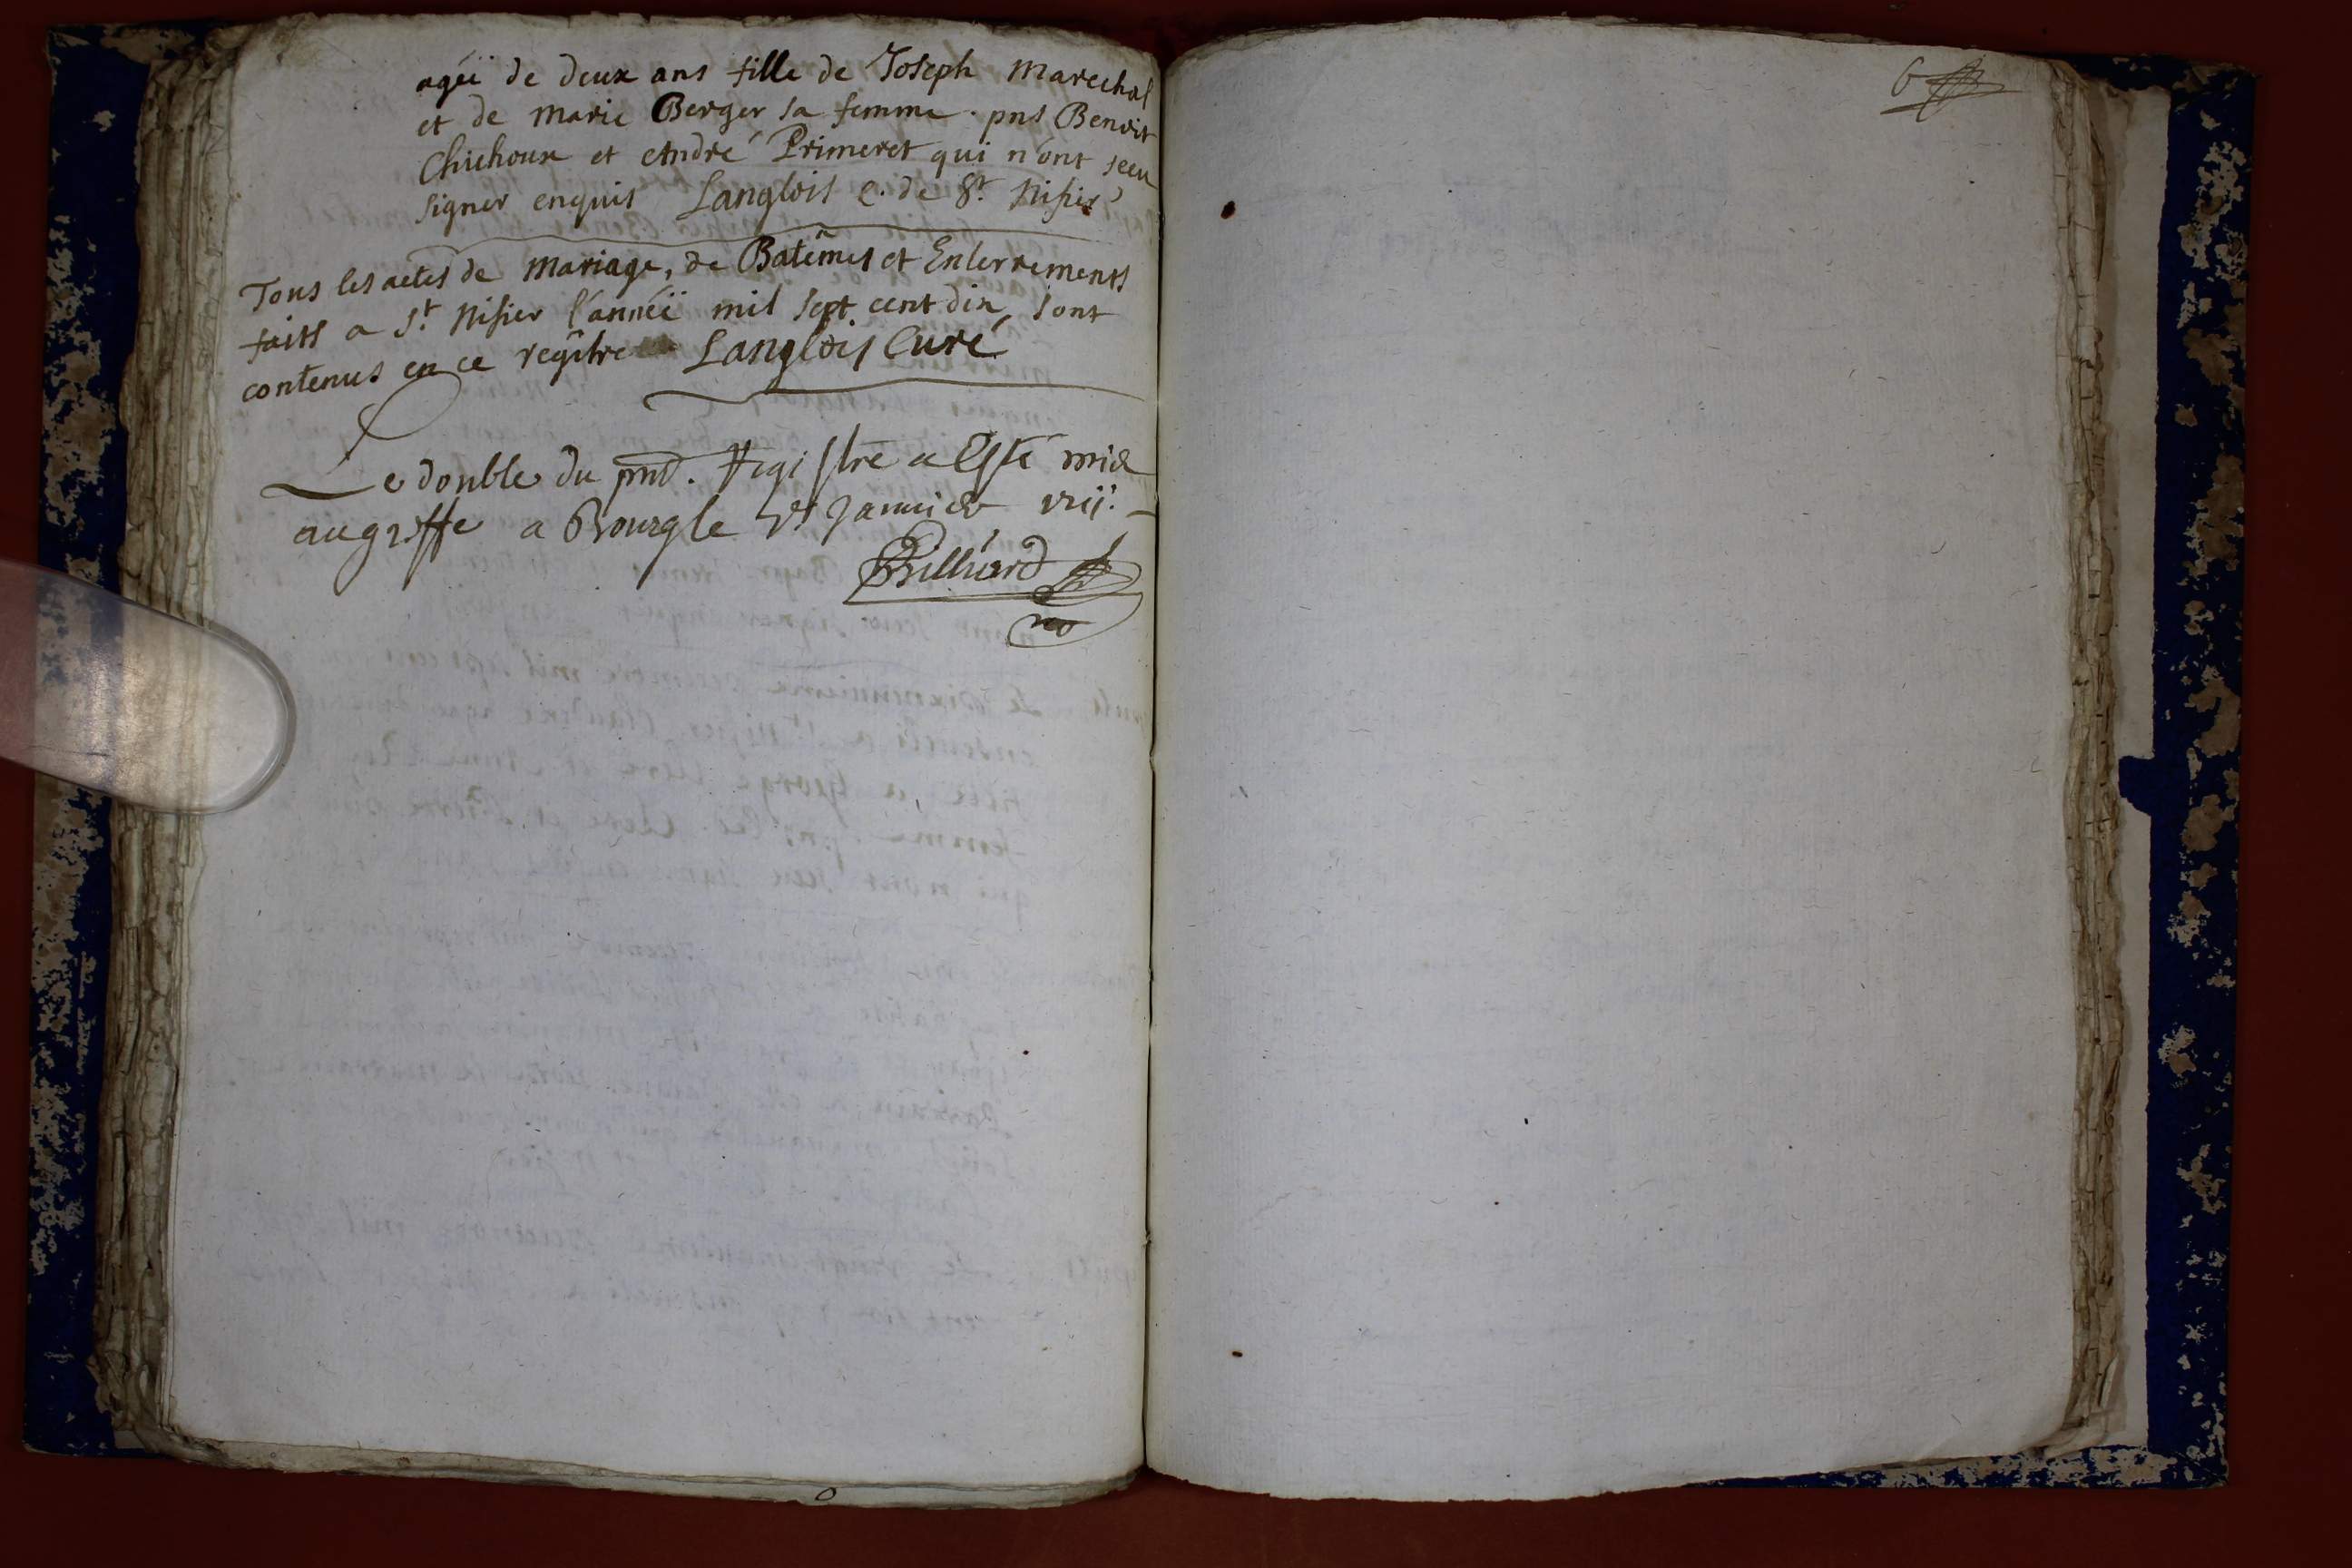 agéë de deux ans fille de Joseph Marechal
et de Marie Berger sa femme. pns Benoit
Chichoux et André Primeret qui n'ont sceu
signer enquis Langlois c. de St. Nisier
Tous les actes de Mariage, de Batêmes et Enterrements
faits a St. Nisier l'annéë mil sept cent dix, sont
contenus en ce regître Langlois Curé
Le double du pnt. Registre a esté mis
au greffe a Bourg le Janvier
Billiard
6